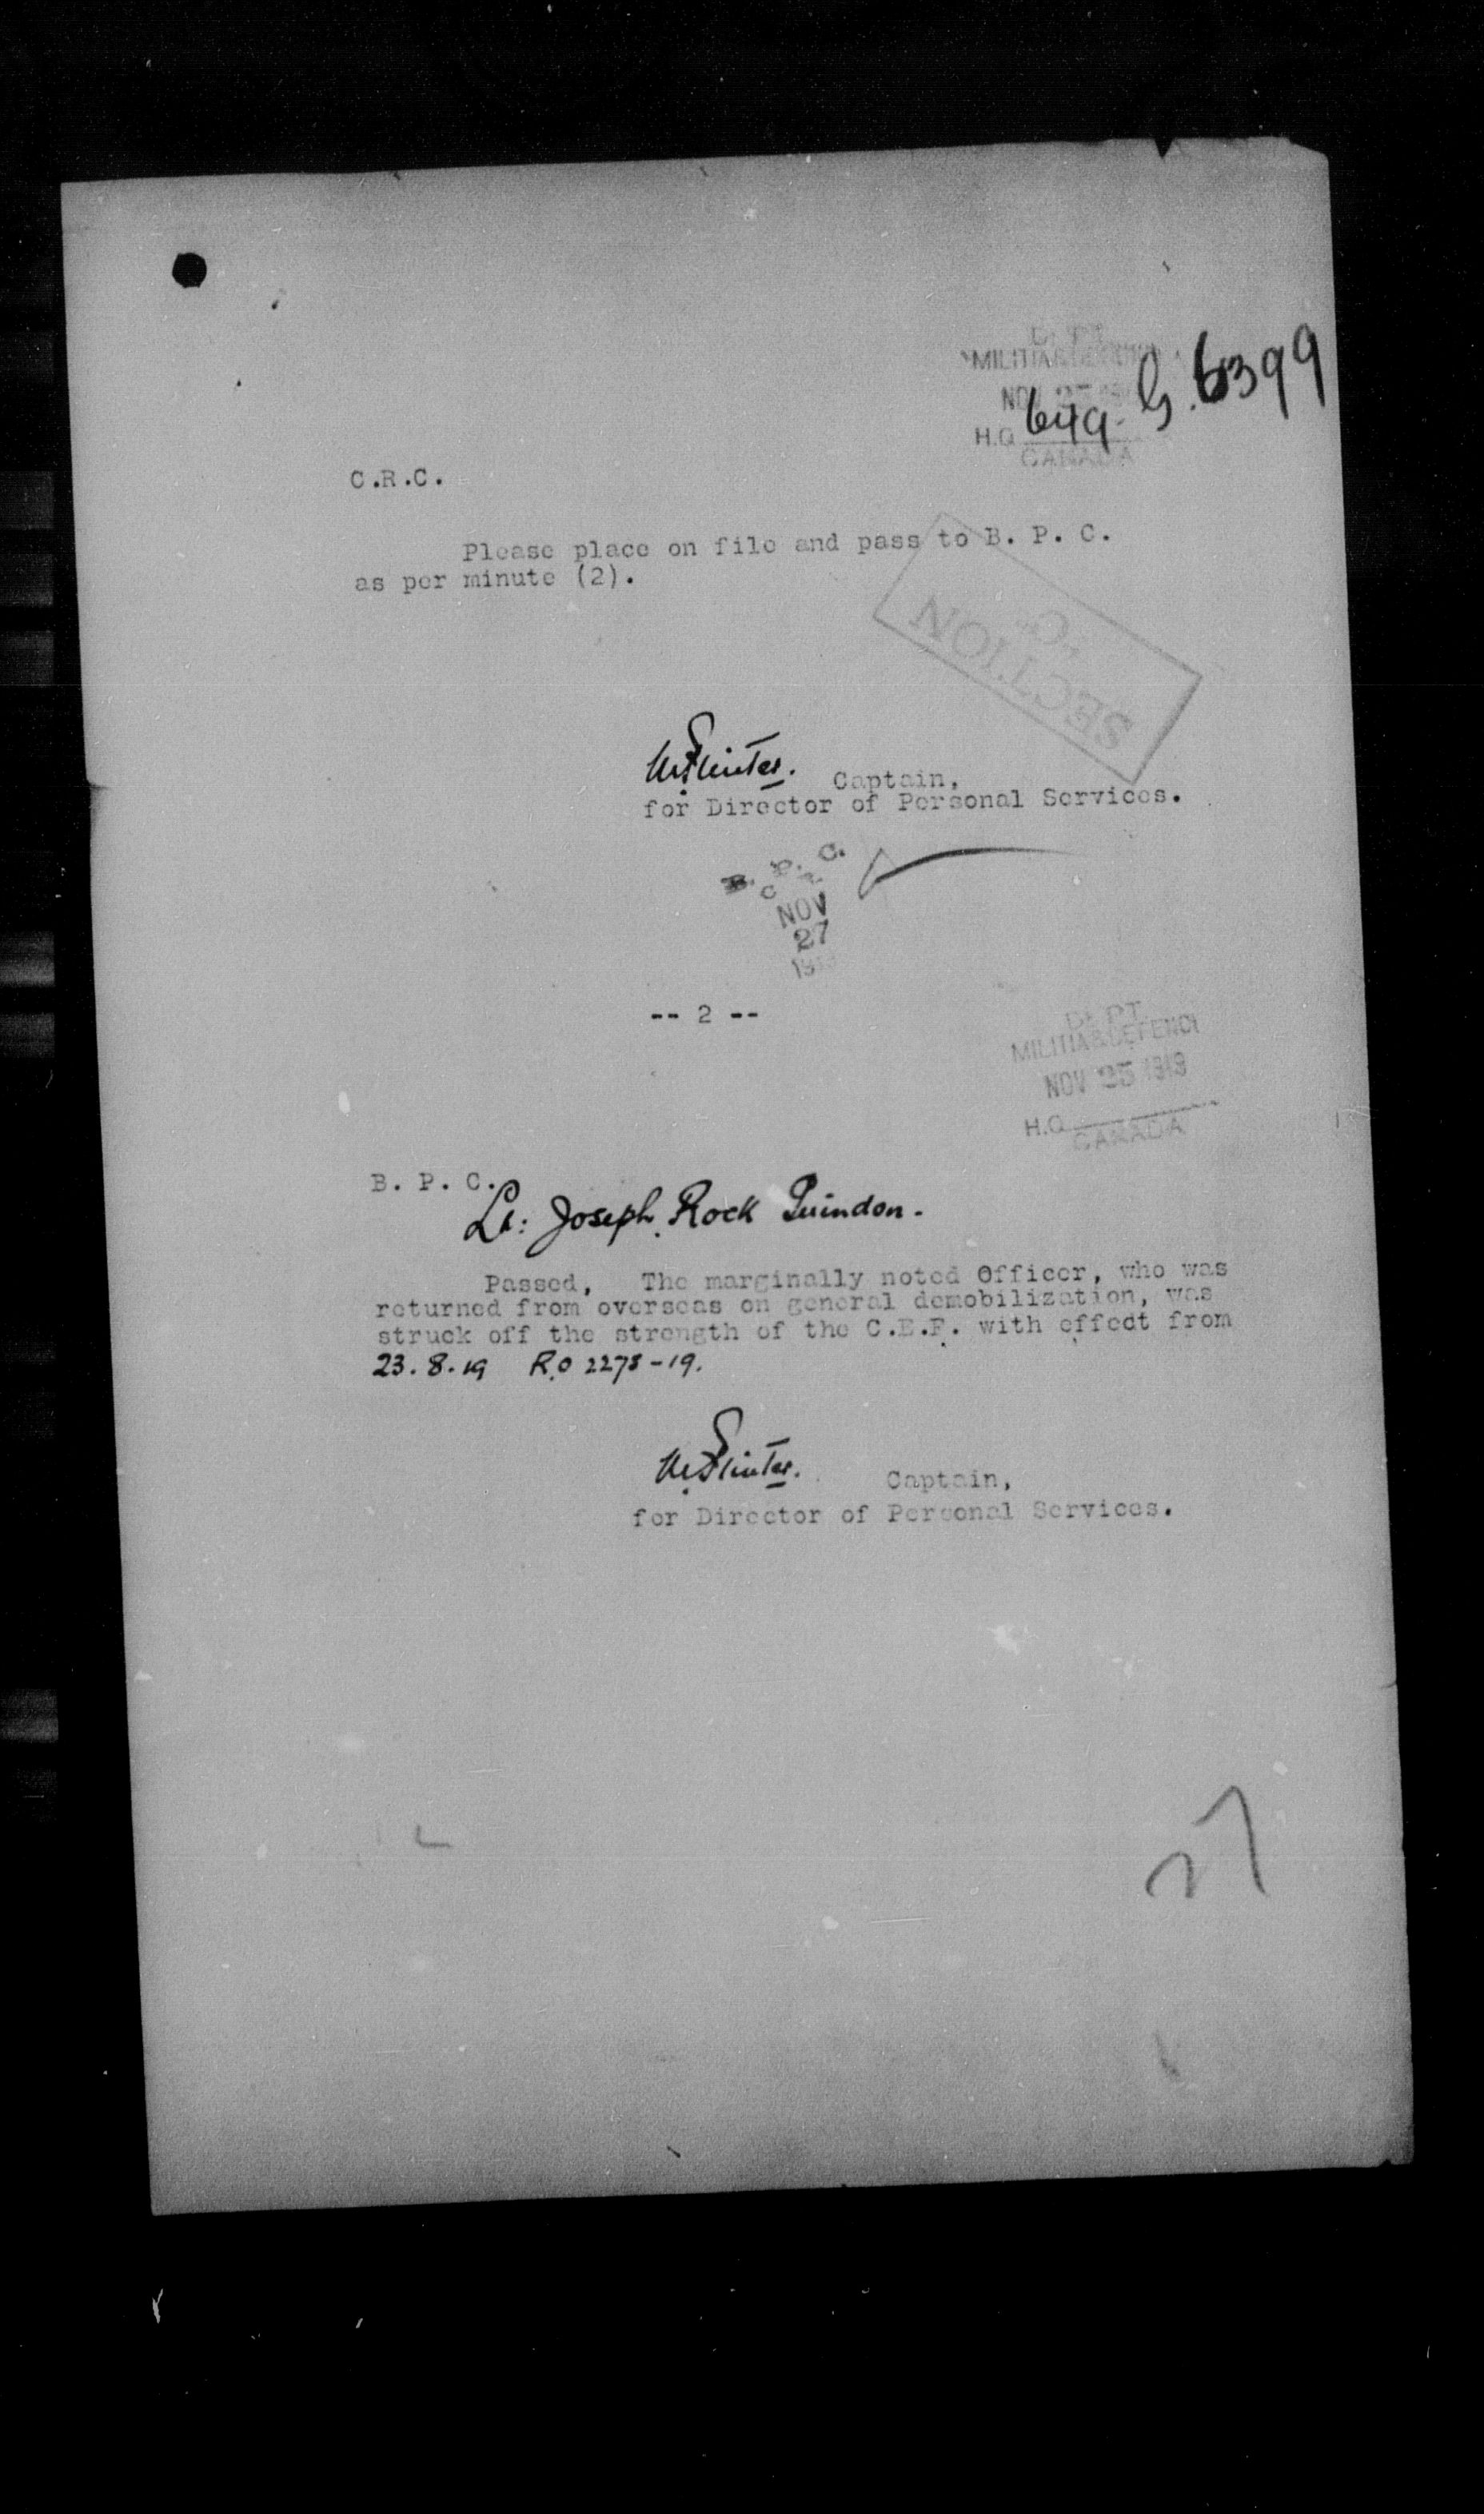 DEPT.
MILITIA & DEFENCE
NOV 25
H.Q. 649-G.6399
CANADA
C.R.C.
Please place on file and pass to B. P. C.
as per minute (2).
SECTION
"C"
Captain,
for Director of Personal Services.
B. P. C.
NOV
27
-- 2 --
DEPT.
MILITIA & DEFENCE
NOV 25 1919
H.Q.
CANADA
B. P. C.
Lt: Joseph Rock Guindon.
Passed, The marginally noted Officer, who was
returned from overseas on general demobilization, was
struck off the strength of the C.E.F. with effect from
23.8.19 R.O 2278-19.
Captain,
for Director of Personal Services.
27